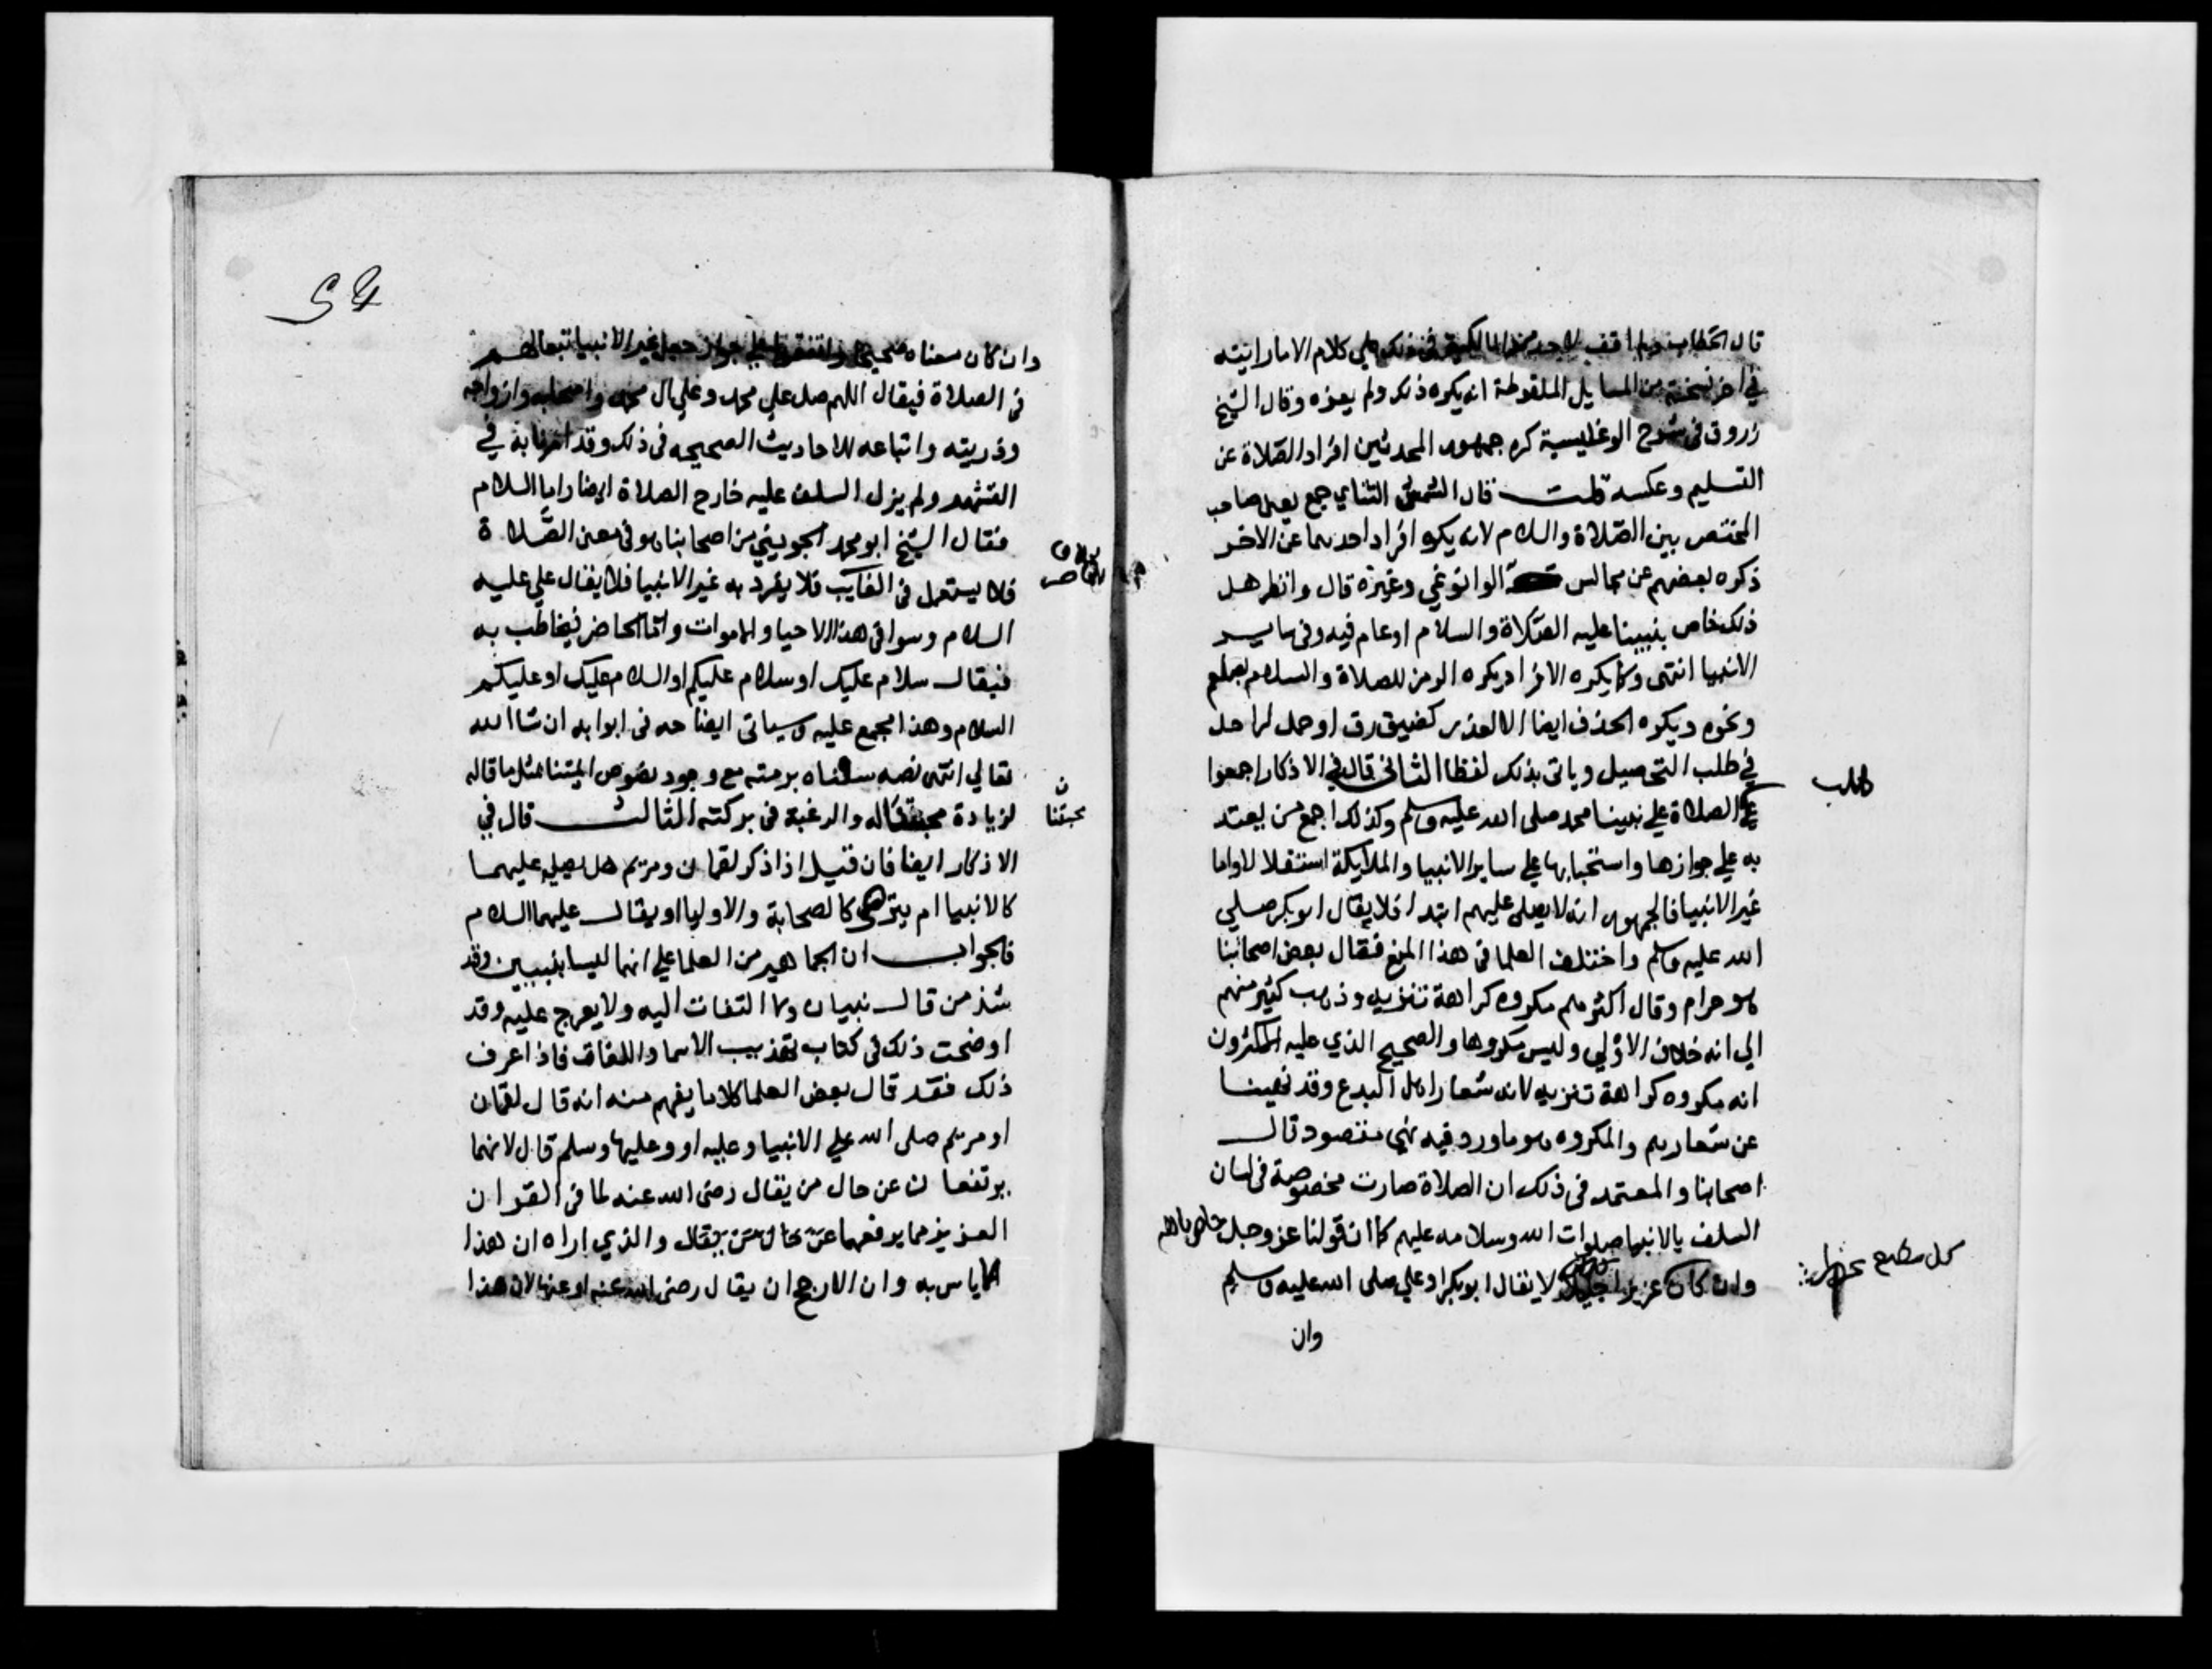 قال الحطاب ولم اقف لاحد من المالكية في ذلك على كلام الا ما رايته
في اخر نسخة من المسايل الملقوطة انه يكره ذلك ولم يعزه وقال الشيخ
زروق في شرح الوغليسية كره جمهور المحدثين افراد الصلاة عن
التسليم وعكسه قلت قال الشمس التتاي جمع يعني صاحب
المختصر بين الصلاة والسلام لانه يكره افراد احدهما عن الاخر
ذكره بعضهم عن مجالس الوانوغي وغيره قال وانظر هل
ذلك خاص بنبينا عليه الصلاة والسلام او عام فيه وفي ساير
الانبيا انتهى وكما يكره الافراد يكره الرمز للصلاة والسلام بصلعم
ونحوه ويكره الحذف ايضا الا لعذر كضيق رق او حمل لراحل
في طلب التحصيل وياتي بذلك لفظا الثاني قال في الاذكار اجمعوا
على الصلاة على نبينا محمد صلى الله عليه وسلم وكذلك اجمع من يعتد
به على جوازها واستحبابها على ساير الانبيا والملايكة استقلالا واما
غير الانبيا فالجمهور انه لا يصلى عليهم ابتدا فلا يقال ابو بكر صلى
الله عليه وسلم واختلف العلما في هذا المنع فقال بعض اصحابنا
هو حرام وقال اكثرهم مكروه كراهة تنزيه وذهب كثير منهم
الى انه خلاف الاولى وليس مكروها والصحيح الذي عليه الاكثرون
انه مكروه كراهة تنزيه لانه شعار اهل البدع وقد نهينا
عن شعارهم والمكروه هو ما ورد فيه نهي مقصود قال
اصحابنا والمعتمد في ذلك ان الصلاة صارت مخصوصة في لسان
السلف بالانبيا صلوات الله وسلامه عليهم كما ان قولنا عز وجل خاص بالله
وان كان عزيزا جليلا لا يقال ابو بكر او علي صلى الله عليه وسلم
وان
مطلب
وان كان معناه صحيحا واتفقوا على جواز جعل غير الانبيا تبعا لهم
في الصلاة فيقال اللهم صل على محمد وعلى ال محمد واصحابه وازواجه
وذريته واتباعه للاحاديث الصحيحه في ذلك وقد امرنا به في
التشهد ولم يزل السلف عليه خارج الصلاة ايضا واما السلام
فقال الشيخ ابو محمد الجويني من اصحابنا هو في معنى الصلاة
فلا يستعمل في الغايب فلا يفرد به غير الانبيا فلا يقال علي عليه
السلام وسوا في هذا الاحيا والاموات واما الحاضر فيخاطب به
فيقال سلام عليك او سلام عليكم او السلام عليك او عليكم
السلام وهذا مجمع عليه وسياتي ايضاحه في ابوابه ان شا الله
تعالى انتهى نصه سقناه برمته مع وجود نصوص ايمتنا مثل ما قاله
لزيادة محبتنا له والرغبة في بركته الثالث قال في
الاذكار ايضا فان قيل اذا ذكر لقمان ومريم هل يصلي عليهما
كالانبيا ام يترضى كالصحابة والاوليا او يقال عليهما السلام
فالجواب ان الجماهير من العلما على انهما ليسا بنبيين وقد
شذ من قال نبيان ولا التفات اليه ولا يعرج عليه وقد
اوضحت ذلك في كتاب تهذيب الاسما واللغات فاذا عرف
ذلك فقد قال بعض العلما كلاما يفهم منه انه قال لقمان
او مريم صلى الله على الانبيا وعليه او وعليها وسلم قال لانهما
يرتفعان عن حال من يقال رضي الله عنه لما في القران
العزيز مما يرفعهما عن حال من يقال والذي اراه ان هذا
لا باس به وان الارجح ان يقال رضي الله عنه او عنها لان هذا
محبتنا